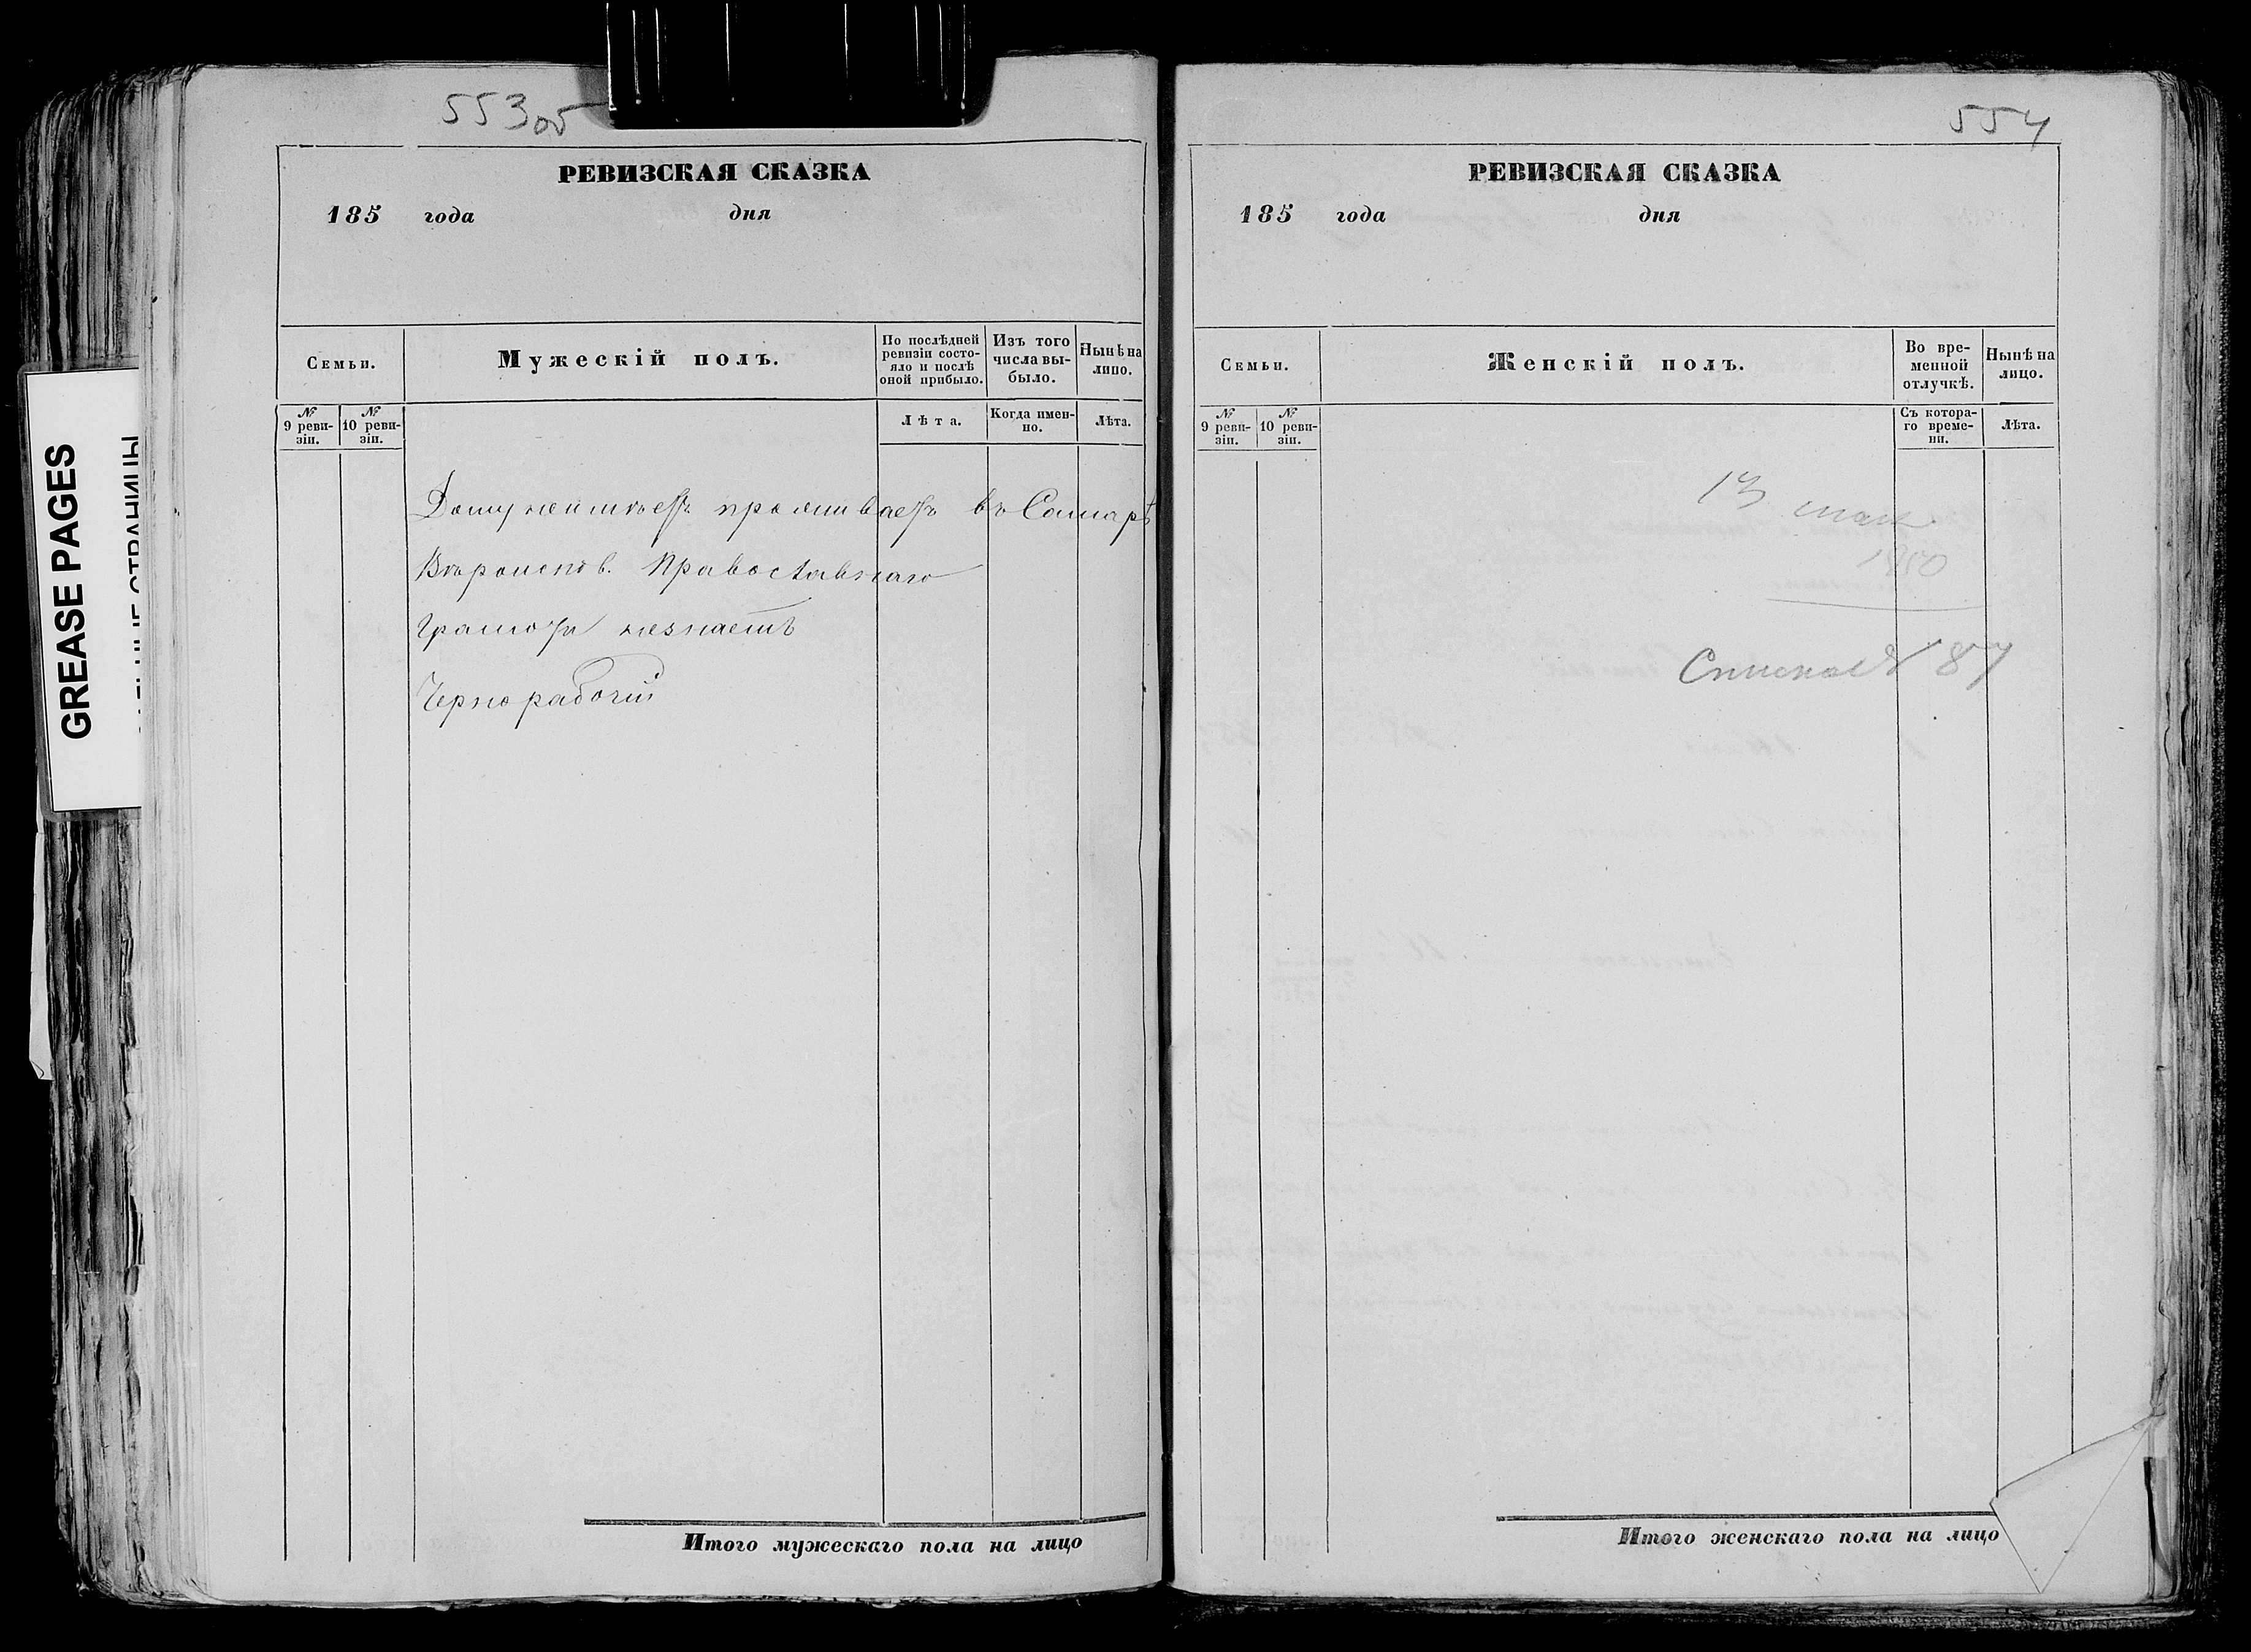 553 об
РЕВИЗСКАЯ СКАЗКА
185 года дня
Семьи.
Мужескій полъ.
По послѣдней ревизіи состо-
яло и послѣ
оной прибыло.
Изъ того
числа вы-
было.
Нынѣ на
лицо.
№
9 реви-
зіи.
№
10 реви-
зіи.
Лѣта.
Когда имен-
но.
Лѣта.
Дому неимѣетъ проживаетъ въ Самарѣ
Вѣроиспов. Православнаго
Грамоты незнаетъ
Чернорабочій
Итого мужескаго пола на лицо
GREASE PAGES
554
РЕВИЗСКАЯ СКАЗКА
185 года дня
Семьи.
Женскій полъ.
Во вре-
менной
отлучкѣ.
Нынѣ на
лицо.
№
9 реви-
зіи.
№
10 реви-
зіи.
Съ котора-
го време-
ни.
Лѣта.
13
1850
87
Итого женскаго пола на лицо